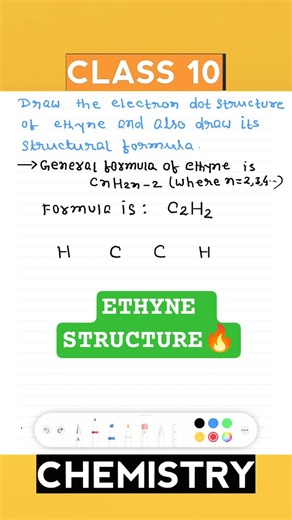 CLASS 10
Draw the electron dot structure
of ethyne and also draw its
structural formula.
→ General formula of ethyne is
CnH2n-2 (where n=2,3,4..)
Formula is: C2H2
H C C H
ETHYNE
STRUCTURE🔥
CHEMISTRY